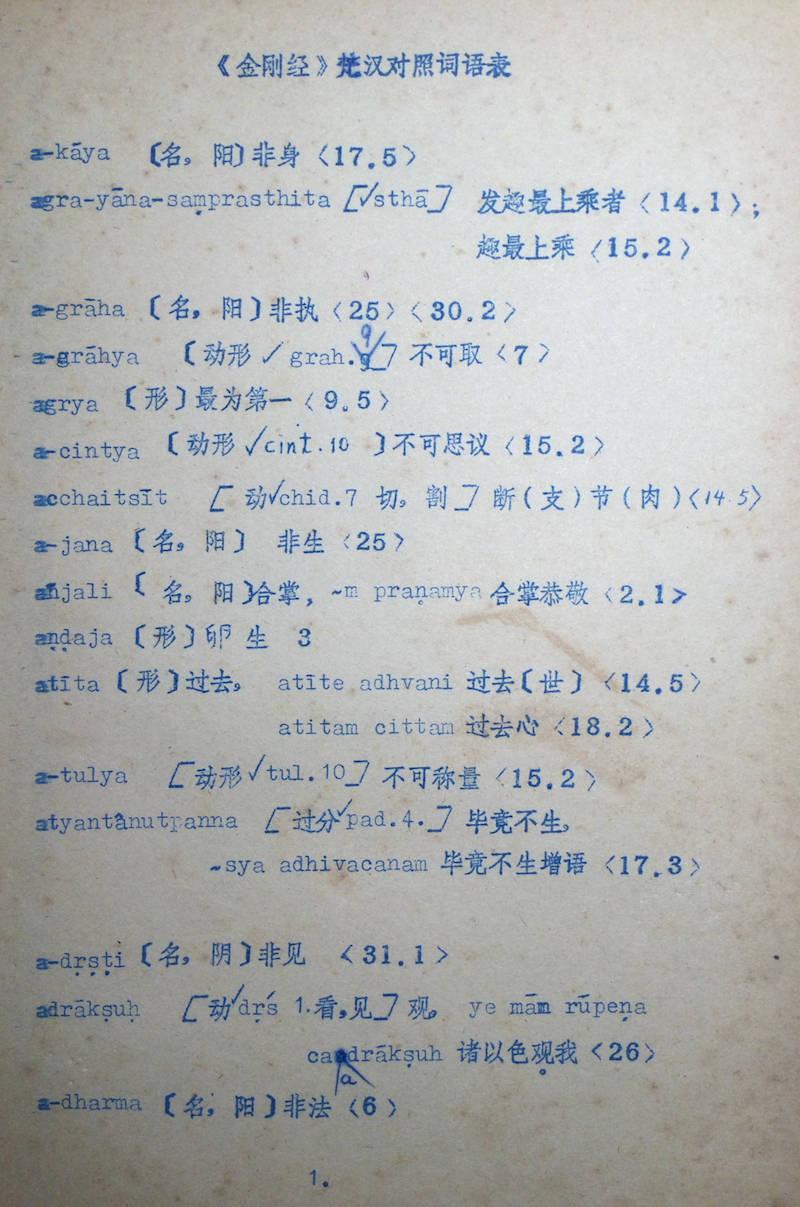 《金刚经》梵汉对照词语表
a-kāya 〔名，阳〕非身〈17.5〉
agra-yāna-saṃprasthita [√sthā] 发趣最上乘者〈14.1〉;
趣最上乘〈15.2〉
a-grāha 〔名，阳〕非执〈25〉〈30.2〉
a-grāhya 〔动形√grah.9] 不可取〈7〉
agrya 〔形〕最为第一〈9.5〉
a-cintya 〔动形√cint.10〕不可思议〈15.2〉
acchaitsīt [动√chid.7 切，割] 断(支)节(肉)〈14.5〉
a-jana 〔名，阳〕 非生〈25〉
añjali 〔名，阳〕合掌, ~m praṇamya 合掌恭敬〈2.1〉
aṇḍaja 〔形〕卵生 3
atīta 〔形〕过去。 atīte adhvani 过去〔世〕〈14.5〉
atitam cittam 过去心〈18.2〉
a-tulya [动形√tul.10] 不可称量〈15.2〉
atyantânutpanna [过分√pad.4.] 毕竟不生。
~sya adhivacanam 毕竟不生增语〈17.3〉
a-dṛṣṭi 〔名，阴〕非见 〈31.1〉
adrākṣuḥ [动√dṛś 1.看，见] 观。 ye mām rūpeṇa
ca adrākṣuh 诸以色观我〈26〉
a-dharma 〔名，阳〕非法〈6〉
1.